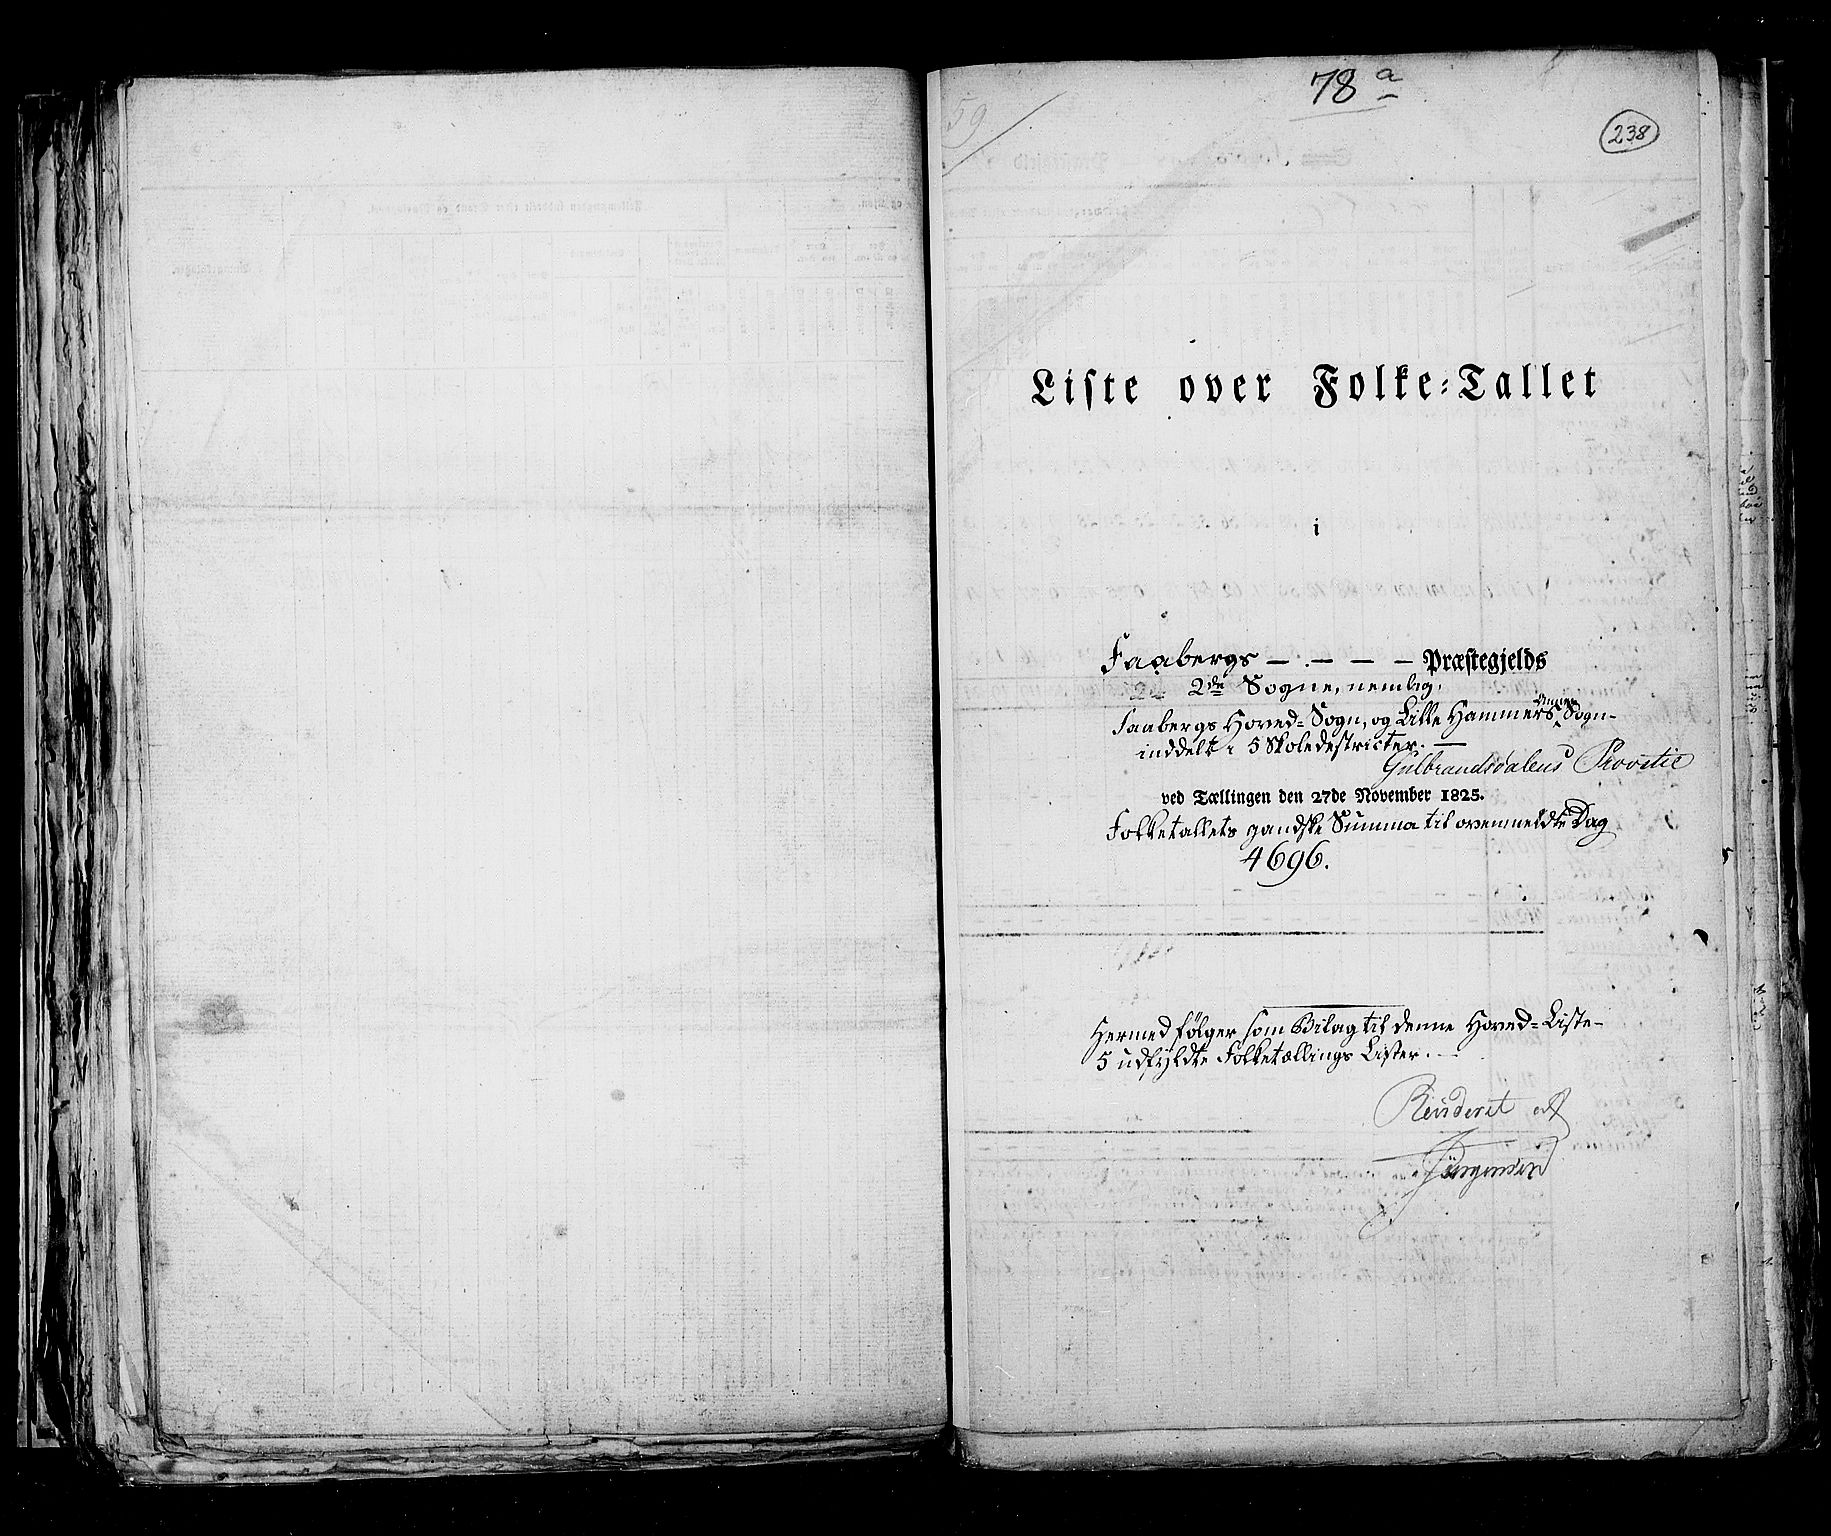 78 a
59
238
Liste over Folke-Tallet
i
Faabergs — . — — — Præstegjelds
2de Sogne, nemlig,
Faabergs Hoved-Sogn, og Lille Hammers Annex Sogn-
inddelt i 5 Skoledestricter. —
Gulbrandsdalens Provstie
ved Tællingen den 27de November 1825.
Folketallets gandske Summa til ovenmeldte Dag
4696.
Hermed følger som Bilag til denne Hoved-Liste-
5 udfyldte Folketællings Lister. —
Revideret af
Jürgensen